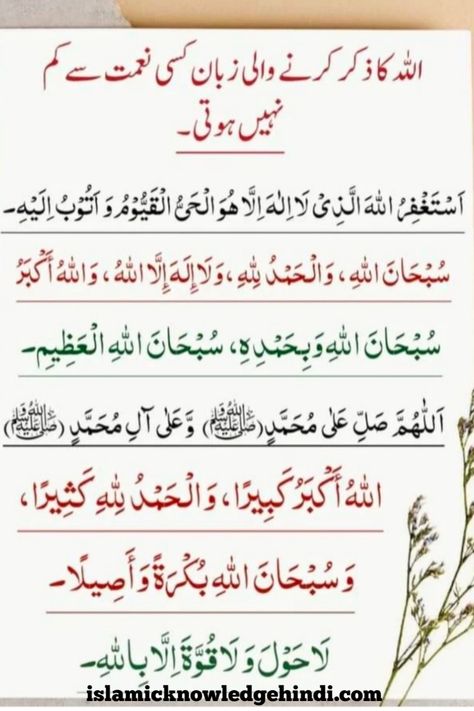 اللہ کا ذکر کرنے والی زبان کسی نعمت سے کم
نہیں ہوتی۔
اَسْتَغْفِرُ اللهَ الَّذِیْ لَا اِلٰهَ اِلَّا هُوَ الْحَیُّ الْقَیُّوْمُ وَ اَتُوْبُ اِلَیْهِ۔
سُبْحَانَ اللهِ، وَالْحَمْدُ لِلهِ، وَلَا إِلَهَ إِلَّا اللهُ، وَاللهُ أَكْبَرُ
سُبْحَانَ اللهِ وَبِحَمْدِهِ، سُبْحَانَ اللهِ الْعَظِيْمِ۔
اَللّٰهُمَّ صَلِّ عَلٰی مُحَمَّدٍ (ﷺ) وَّعَلٰی آلِ مُحَمَّدٍ (ﷺ)
اللهُ أَكْبَرُ كَبِيرًا، وَالْحَمْدُ لِلهِ كَثِيرًا،
وَسُبْحَانَ اللهِ بُكْرَةً وَأَصِيلًا۔
لَا حَوْلَ وَ لَا قُوَّةَ اِلَّا بِاللهِ۔
islamicknowledgehindi.com